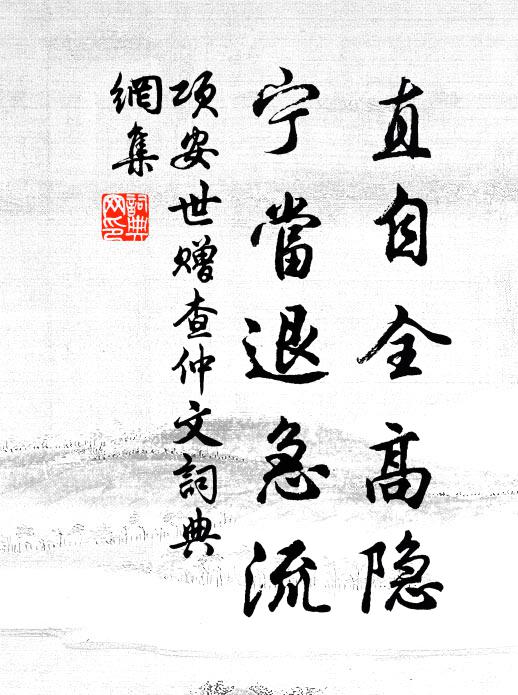 直自全高隐
宁當退急流
项安世赠查仲文詞典
網集
詞典
网印